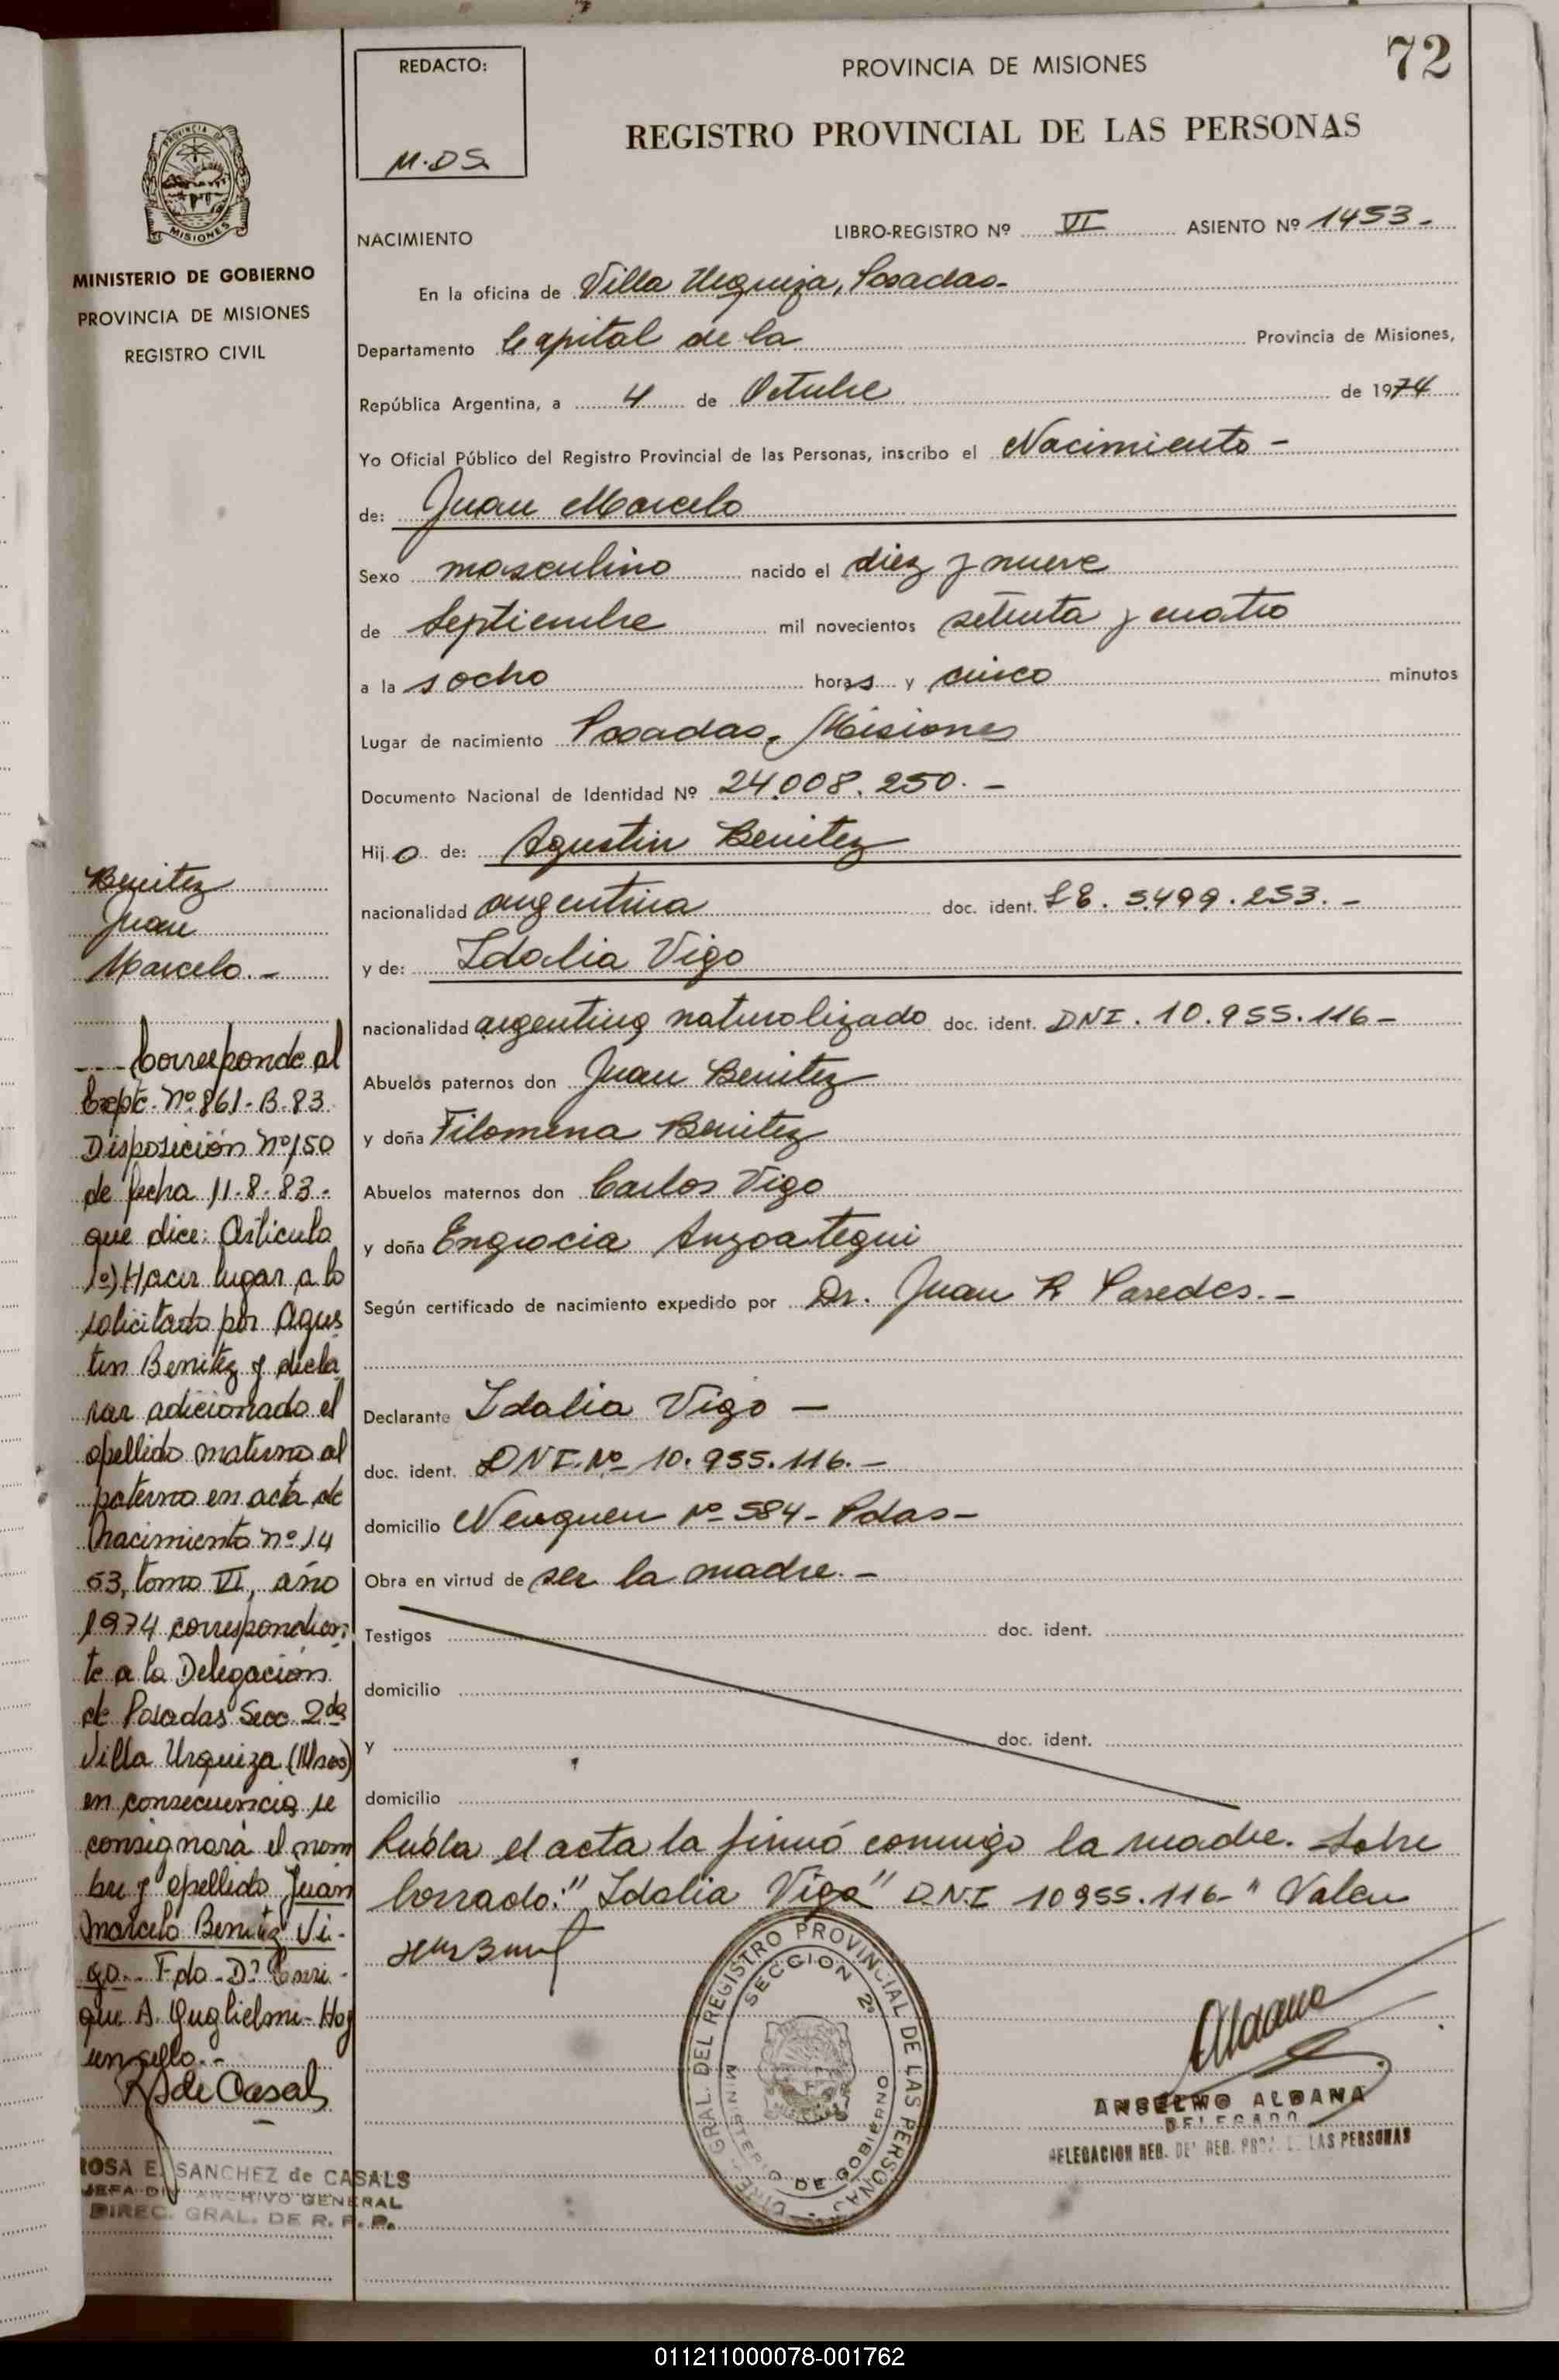 72
REDACTO:
M.DS.
PROVINCIA DE MISIONES
REGISTRO PROVINCIAL DE LAS PERSONAS
PROVINCIA DE
MISIONES
MINISTERIO DE GOBIERNO
PROVINCIA DE MISIONES
REGISTRO CIVIL
NACIMIENTO
LIBRO-REGISTRO Nº VI ASIENTO Nº 1453-
En la oficina de Villa Urquiza, Posadas-
Departamento Capital de la Provincia de Misiones,
República Argentina, a 4 de Octubre de 1974
Yo Oficial Público del Registro Provincial de las Personas, inscribo el Nacimiento -
de: Juan Marcelo
Sexo masculino nacido el diez y nueve
de Septiembre mil novecientos setenta y cuatro
a la s ocho horas y cinco minutos
Lugar de nacimiento Posadas, Misiones
Documento Nacional de Identidad Nº 24.008.250.-
Hijo de: Agustin Benitez
nacionalidad argentina doc. ident. LE. 5.499.253.-
y de: Idalia Vigo
nacionalidad argentina naturalizado doc. ident. DNI. 10.955.116-
Abuelos paternos don Juan Benitez
y doña Filomena Benitez
Abuelos maternos don Carlos Vigo
y doña Engracia Anzoategui
Según certificado de nacimiento expedido por Dr. Juan R Paredes.-
Declarante Idalia Vigo -
doc. ident. DNI.Nº 10.955.116.-
domicilio Neuquen Nº 584- Pdas-
Obra en virtud de ser la madre.-
Testigos doc. ident.
domicilio
y doc. ident.
domicilio
el acta la firmó conmigo la madre. Sobre
borrado:" Idalia Vigo" D.N.I 10955.116-" Valen
Benitez
Juan
Marcelo.-
---Corresponde al
Expte. Nº 861-B-83
Disposición nº 150
de fecha 11-8-83-
que dice: Articulo
1º) Hacer lugar a lo
solicitado por Agus
tin Benitez y decla
rar adicionado el
apellido materno al
paterno en acta de
nacimiento nº 14
53, tomo VI, año
1974 correspondien
te a la Delegación
de Posadas Secc. 2da
Villa Urquiza
en consecuencia se
consignará el nom
bre y apellido Juan
Marcelo Benitez Vi-
go.- Fdo- Dº Enri-
que A. Guglielmi- Hay
un sello.-
R S de Casals
ROSA E. SANCHEZ de CASALS
JEFA DIV ARCHIVO GENERAL
DIREC. GRAL. DE R. P. P.
DIREC. GRAL. DEL REGISTRO PROVINCIAL DE LAS PERSONAS
SECCION 2ª
MINISTERIO DE GOBIERNO
MISIONES
Aldana
ANSELMO ALDANA
DELEGADO
DELEGACION REG. DEL REG. PROV. DE LAS PERSONAS
011211000078-001762